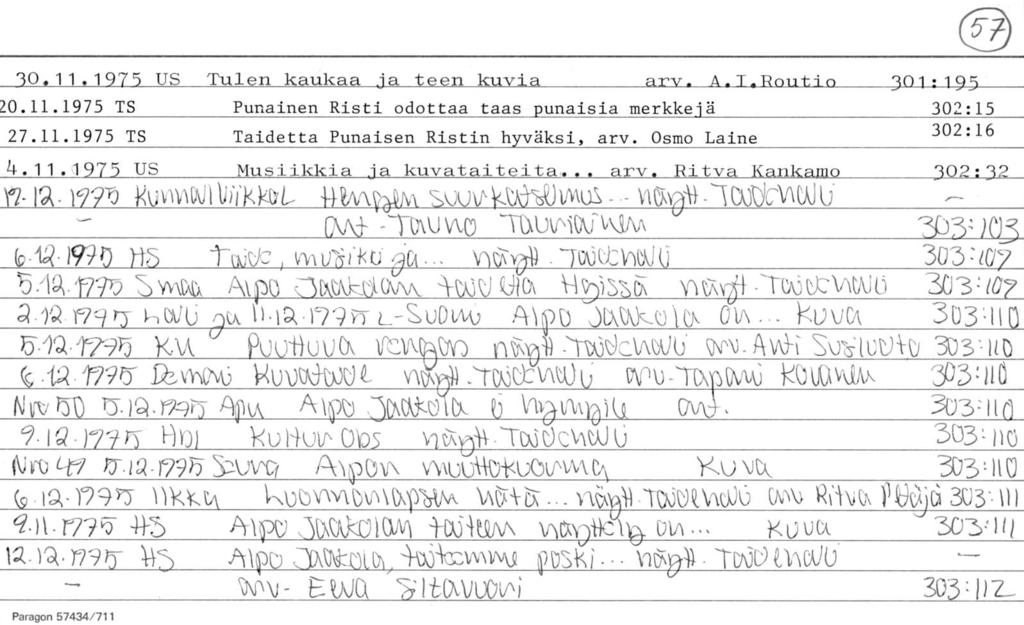 57
30.11.1975 US Tulen kaukaa ja teen kuvia arv. A.I.Routio 301:195
20.11.1975 TS Punainen Risti odottaa taas punaisia merkkejä 302:15
27.11.1975 TS Taidetta Punaisen Ristin hyväksi, arv. Osmo Laine 302:16
4.11.1975 US Musiikkia ja kuvataiteita... arv. Ritva Kankamo 302:32
12.1975 Hengen suurkatselmus... näytt. Taidehalli —
— Tauno 303:103
6.12.1975 HS Taide, musiikki ja... näytt. Taidehalli 303:109
5.12.1975 Smaa Alpo Jaakolan taidetta H:gissä näytt. Taidehalli 303:109
2.12.1975 ja 11.12.1975 L-Suomi Alpo Jaakola on... Kuva 303:110
5.12.1975 KU Puuttuva rengas näytt. Taidehalli arv. Antti Susiluoto 303:110
6.12.1975 Demari Kuvataide näytt. Taidehalli arv. Tapani Kovanen 303:110
Nro 50 5.12.1975 Apu Alpo Jaakola ei 303:110
9.12.1975 Hbl Kultur Obs näytt. Taidehalli 303:110
Nro 49 5.12.1975 Seura Alpon muottokuvarina Kuva 303:110
6.12.1975 Ilkka Luonnonlapsen hätä... näytt. Taidehalli arv. Ritva 303:111
9.11.1975 HS Alpo Jaakolan taiteen näyttely on... Kuva 303:111
12.12.1975 HS Alpo Jaakola, taiteemme poski... näytt. Taidehalli —
— arv. Eeva Siltavuori 303:112
Paragon 57434/711